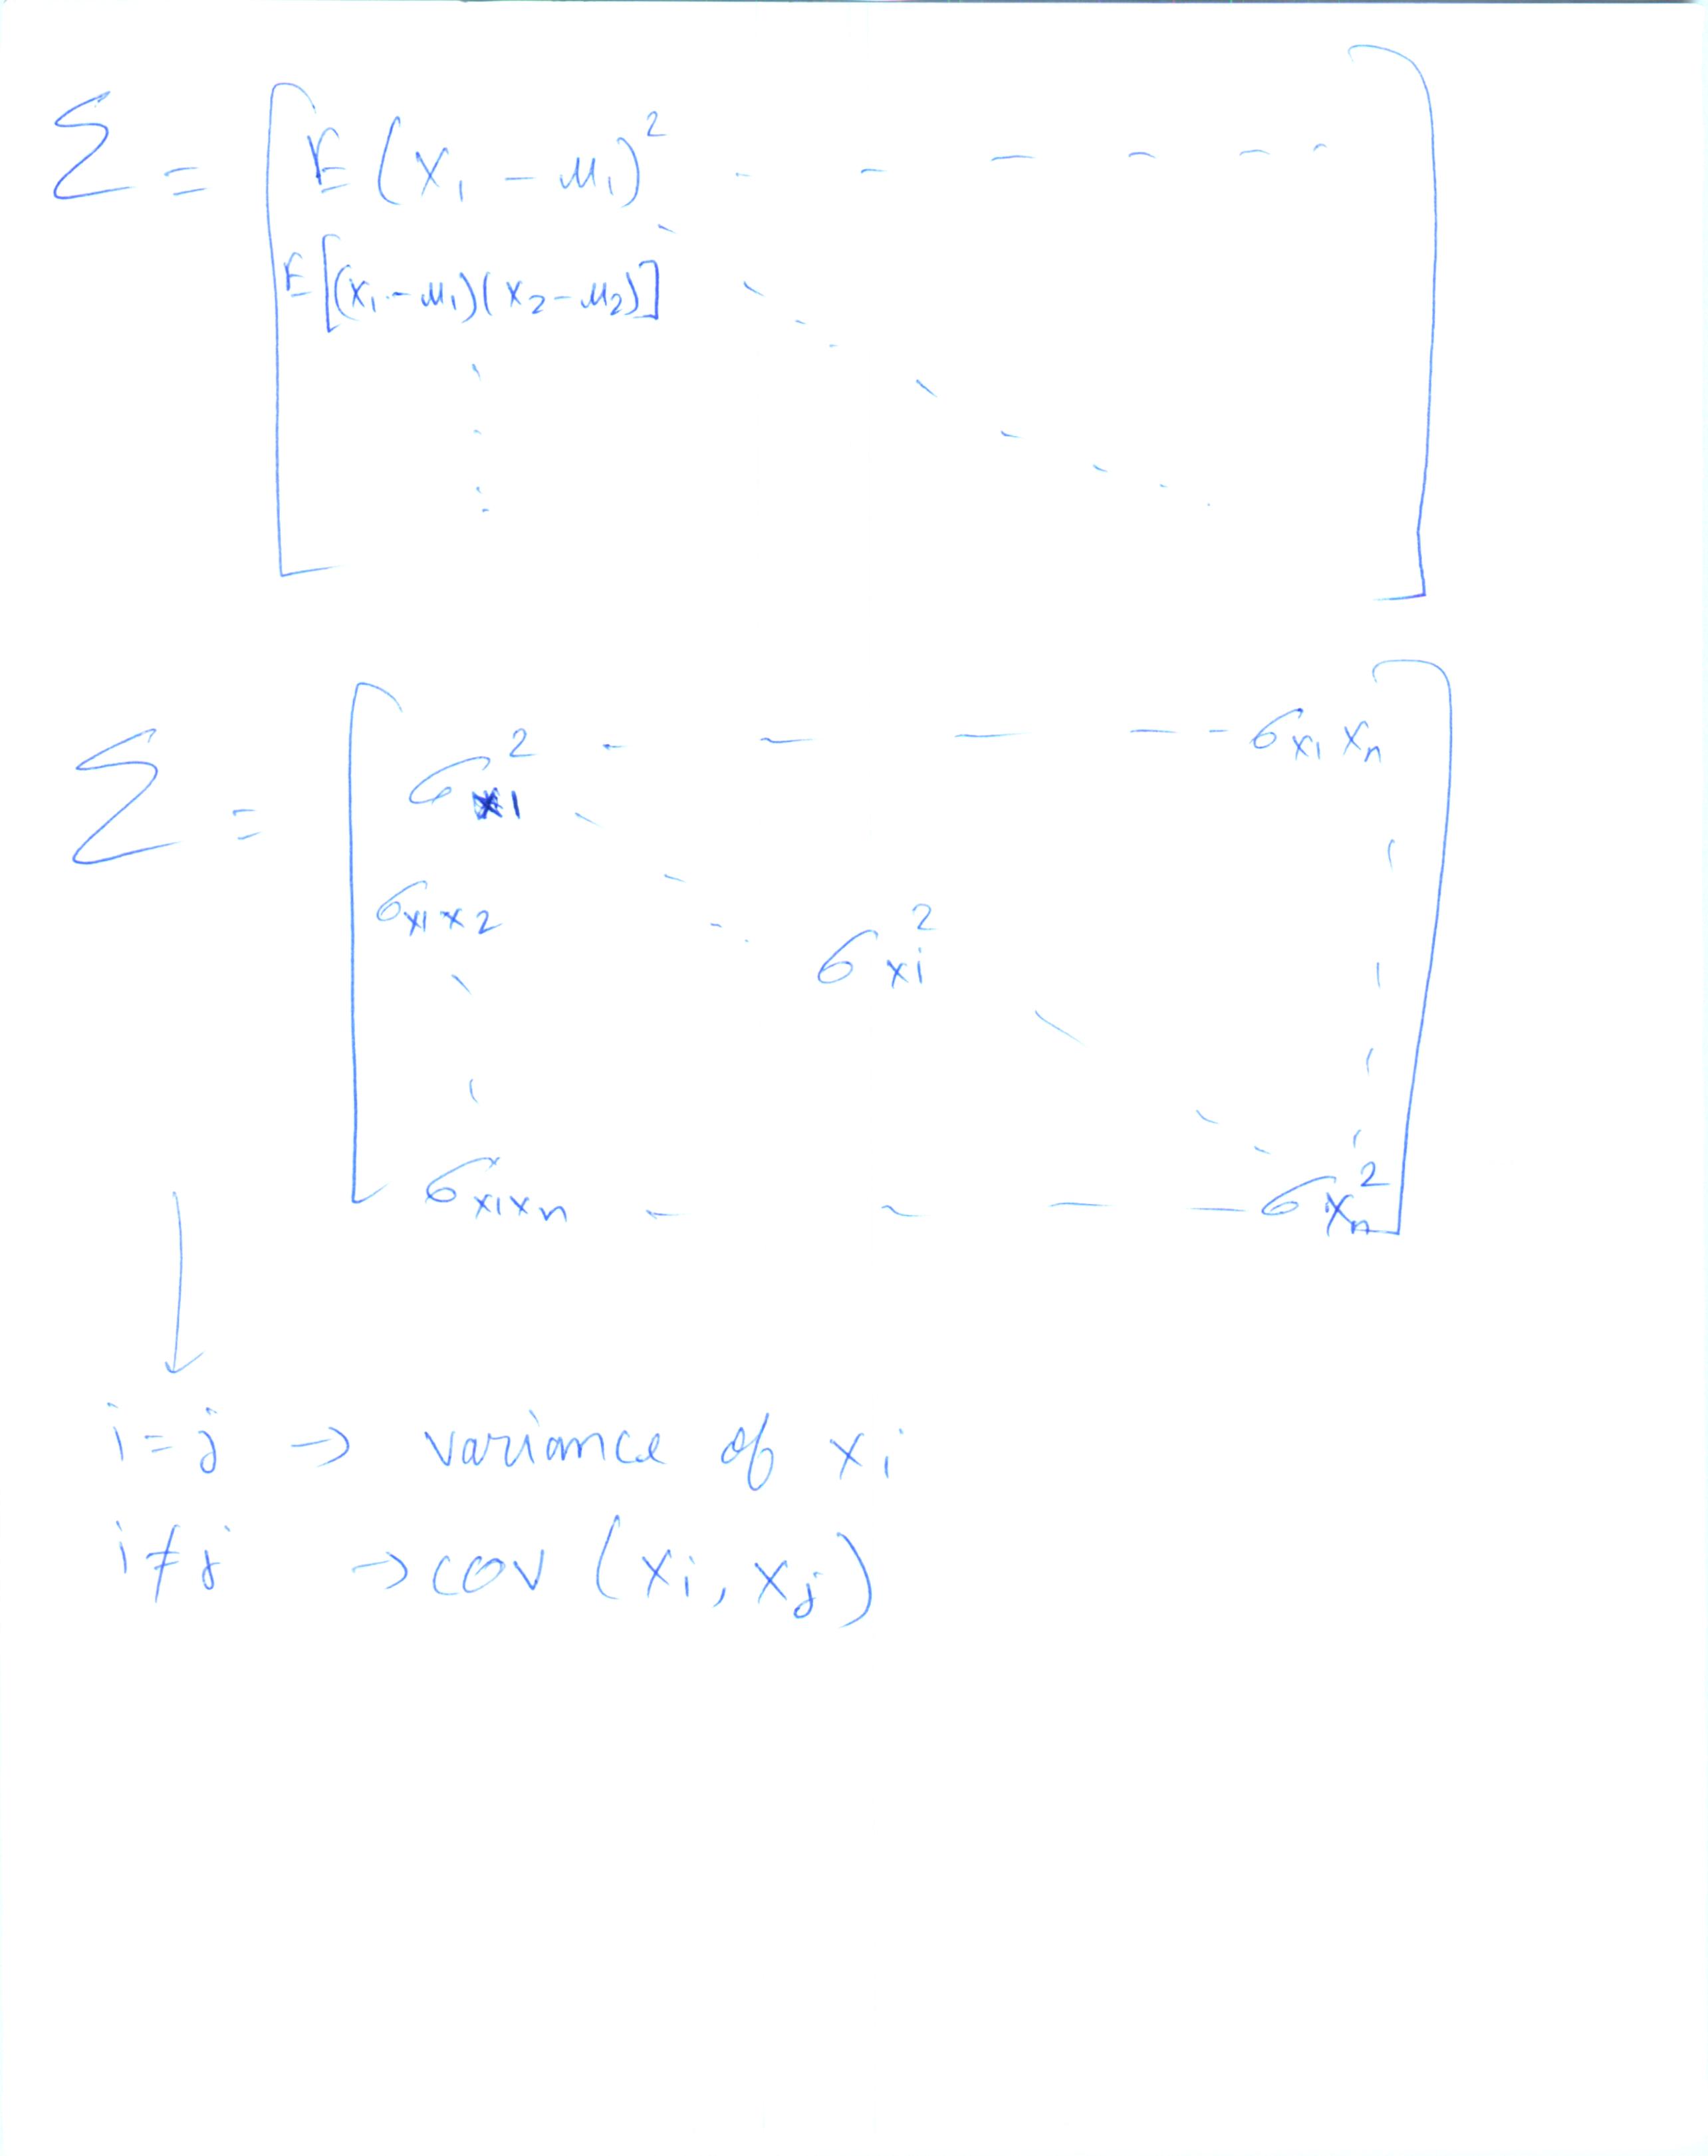 Σ = [ E(X₁ - μ₁)² - - - - - -
E[(x₁-μ₁)(x₂-μ₂)] ]
Σ = [ σ²ₓ₁ - - - - - σₓ₁ₓₙ
σₓ₁ₓ₂ σ²ₓᵢ
σₓ₁ₓₙ - - - - σ²ₓₙ ]
↓
i = j → variance of xᵢ
i ≠ j → cov (xᵢ, xⱼ)